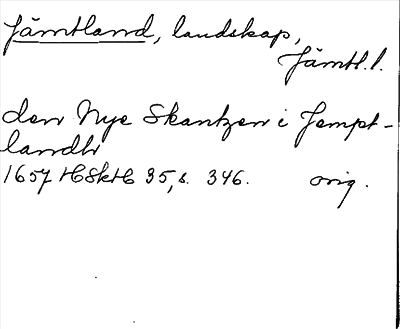 Jämtland, landskap,
Jämtl. l.
den Nye Skantzen i Jempt-
landh
1657 HSkH 35, s. 346. orig.